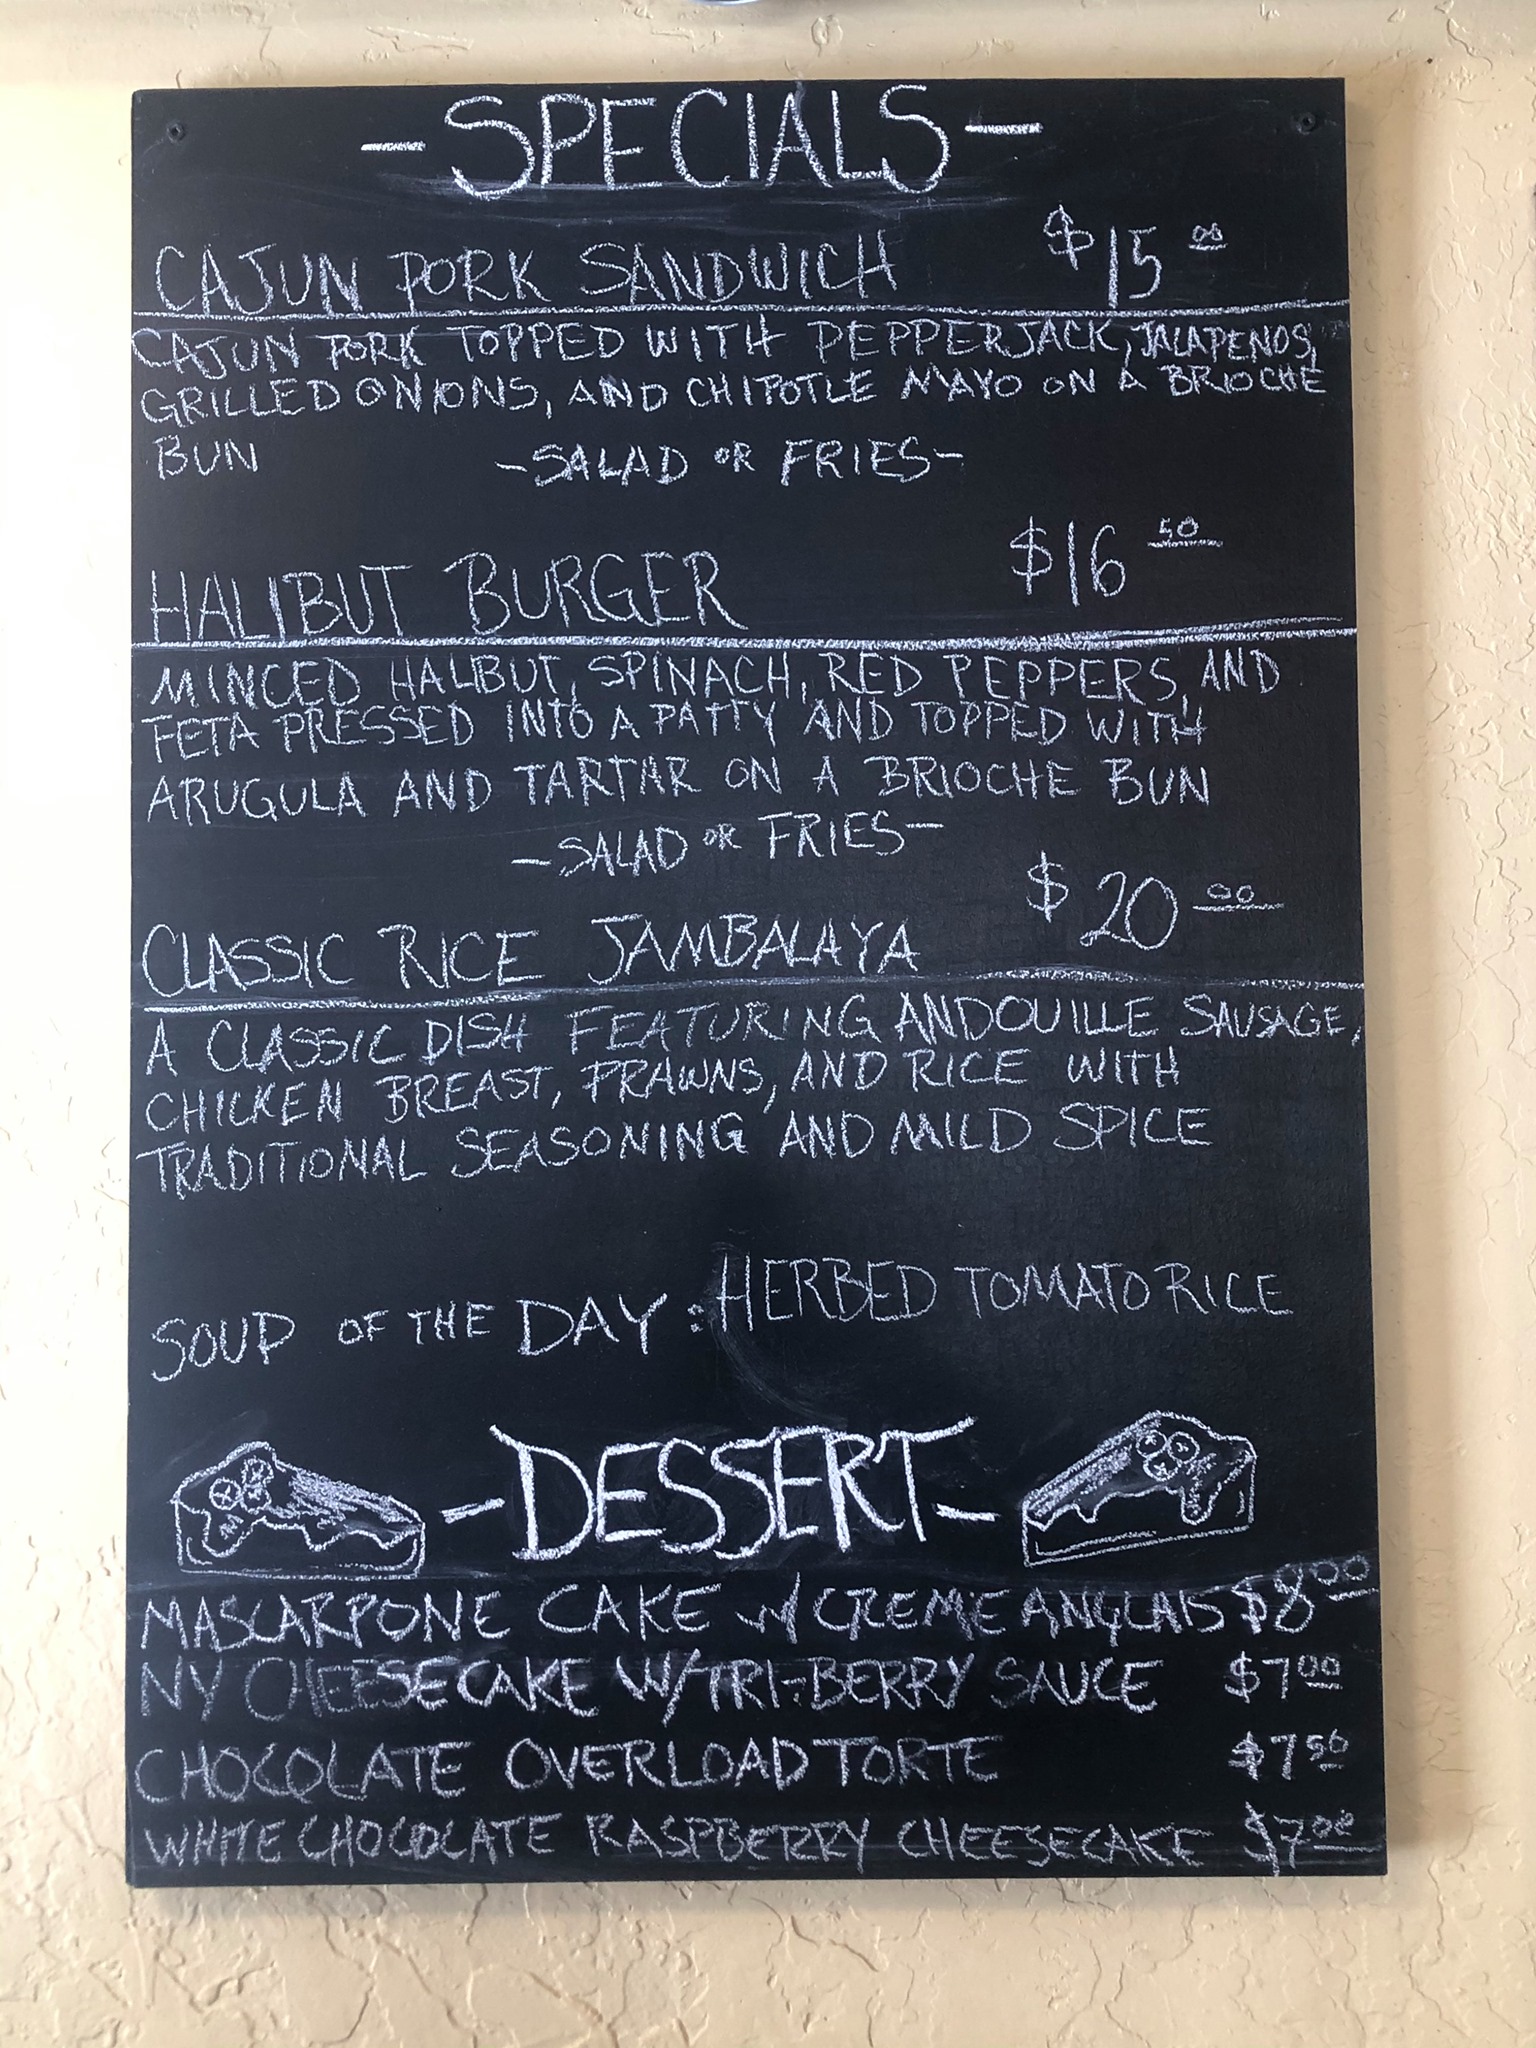 -SPECIALS-
CAJUN PORK SANDWICH $15 00
CAJUN PORK TOPPED WITH PEPPERJACK, JALAPENOS,
GRILLED ONIONS, AND CHIPOTLE MAYO ON A BRIOCHE
BUN -SALAD OR FRIES-
HALIBUT BURGER $16 50
MINCED HALIBUT, SPINACH, RED PEPPERS, AND
FETA PRESSED INTO A PATTY AND TOPPED WITH
ARUGULA AND TARTAR ON A BRIOCHE BUN
-SALAD OR FRIES-
CLASSIC RICE JAMBALAYA $20 00
A CLASSIC DISH FEATURING ANDOUILLE SAUSAGE,
CHICKEN BREAST, PRAWNS, AND RICE WITH
TRADITIONAL SEASONING AND MILD SPICE
SOUP OF THE DAY: HERBED TOMATO RICE
-DESSERT-
MASCARPONE CAKE W/ CREME ANGLAIS $8 00
NY CHEESECAKE W/TRI-BERRY SAUCE $7 00
CHOCOLATE OVERLOAD TORTE $7 50
WHITE CHOCOLATE RASPBERRY CHEESECAKE $7 00